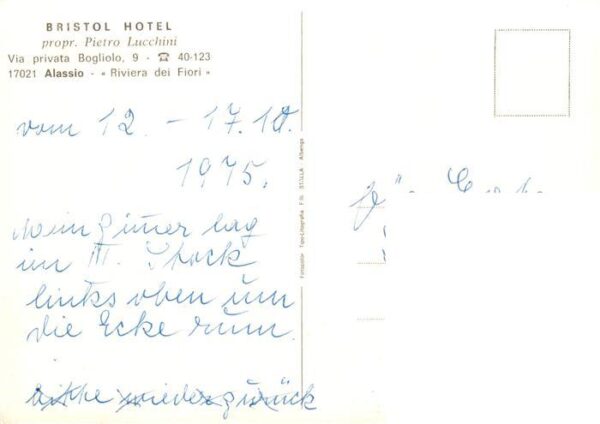 BRISTOL HOTEL
propr. Pietro Lucchini
Via privata Bogliolo, 9 - ☎ 40-123
17021 Alassio - « Riviera dei Fiori »
vom 12. - 17.10.
1975.
Mein Zimer lag
im III. Stock
links oben um
die Ecke rum.
bitte wieder zurück
Fotocolor Tipo-Litografia F.lli STALLA Albenga